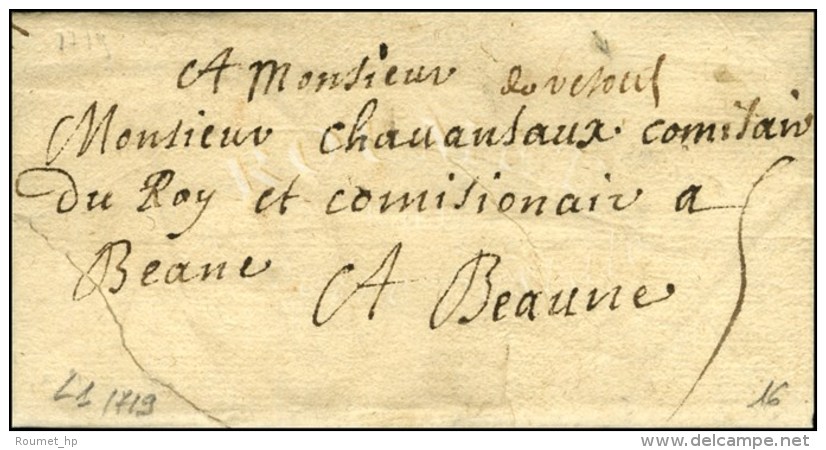 1719
A Monsieur de vesoul
Monsieur chauansaux comisair
du Roy et comisionair a
Beane A Beaune
L1 1719
16
Roumet_hp
www.delcampe.net